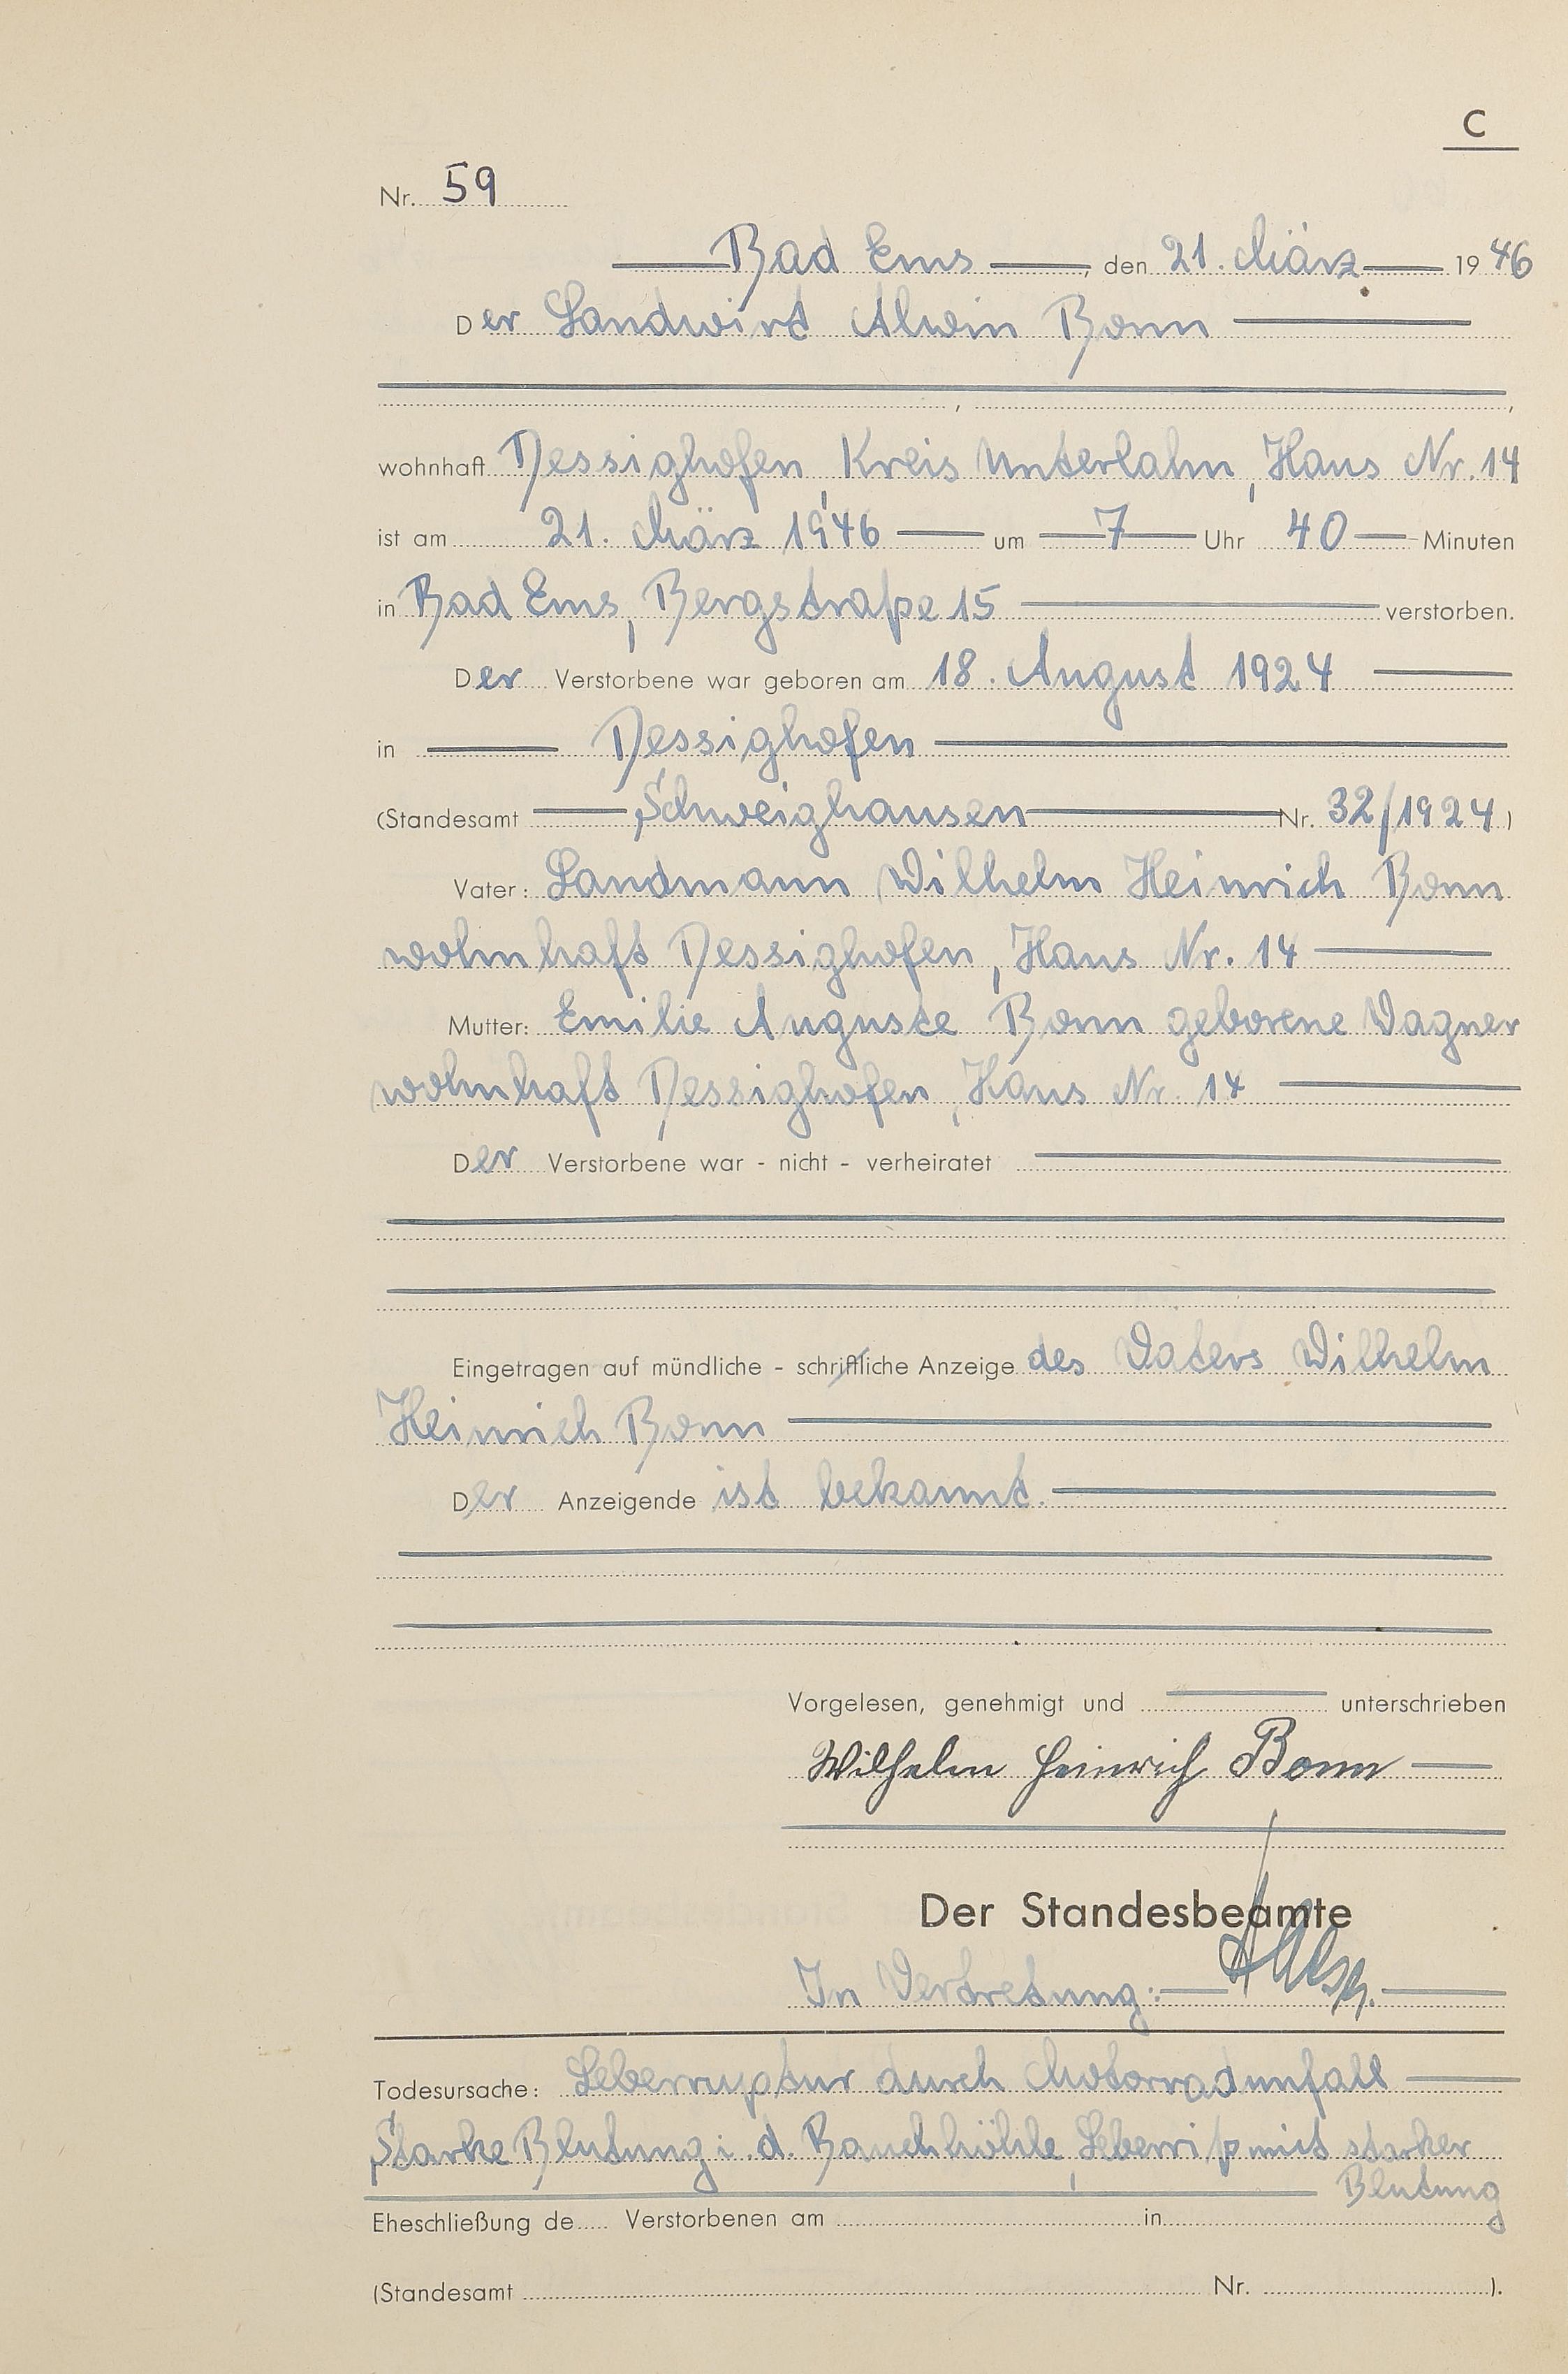 C
Nr. 59
Bad Ems, den 21. März 1946
Der Landwirt Alwin Bonn
, ,
wohnhaft Dessighofen, Kreis Unterlahn, Haus Nr. 14
ist am 21. März 1946 um 7 Uhr 40 Minuten
in Bad Ems, Bergstraße 15 verstorben.
Der Verstorbene war geboren am 18. August 1924
in Dessighofen
(Standesamt Schweighausen Nr. 32/1924)
Vater: Landmann Wilhelm Heinrich Bonn
wohnhaft Dessighofen, Haus Nr. 14
Mutter: Emilie Auguste Bonn geborene Wagner
wohnhaft Dessighofen, Haus Nr. 14
Der Verstorbene war - nicht - verheiratet
Eingetragen auf mündliche - schriftliche Anzeige des Vaters Wilhelm
Heinrich Bonn
Der Anzeigende ist bekannt.
Vorgelesen, genehmigt und unterschrieben
Wilhelm Heinrich Bonn
Der Standesbeamte
In Vertretung:
Todesursache: Leberruptur durch Motorradunfall
Starke Blutung i. d. Bauchhöhle, Leberriß mit starker
Blutung
Eheschließung de Verstorbenen am in
(Standesamt Nr. ).